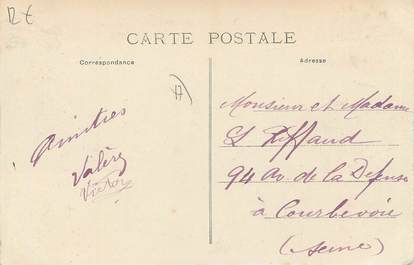 12 €
CARTE POSTALE
Correspondance
Adresse
17
Amitiés
Valère
Victor
Monsieur et Madame
Riffaud
94 Av. de la Défense
à Courbevoie
(Seine)